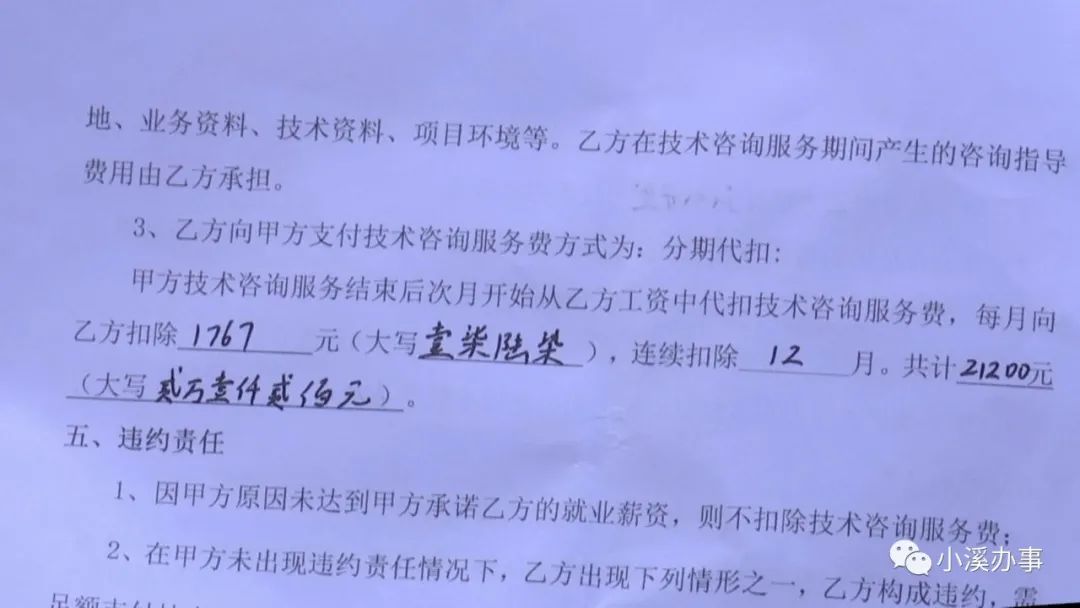 地、业务资料、技术资料、项目环境等。乙方在技术咨询服务期间产生的咨询指导
费用由乙方承担。
3、乙方向甲方支付技术咨询服务费方式为：分期代扣：
甲方技术咨询服务结束后次月开始从乙方工资中代扣技术咨询服务费，每月向
乙方扣除 1767 元（大写壹柒陆柒），连续扣除 12 月。共计21200元
（大写 贰万壹仟贰佰元）。
五、违约责任
1、因甲方原因未达到甲方承诺乙方的就业薪资，则不扣除技术咨询服务费；
2、在甲方未出现违约责任情况下，乙方出现下列情形之一，乙方构成违约，需
小溪办事